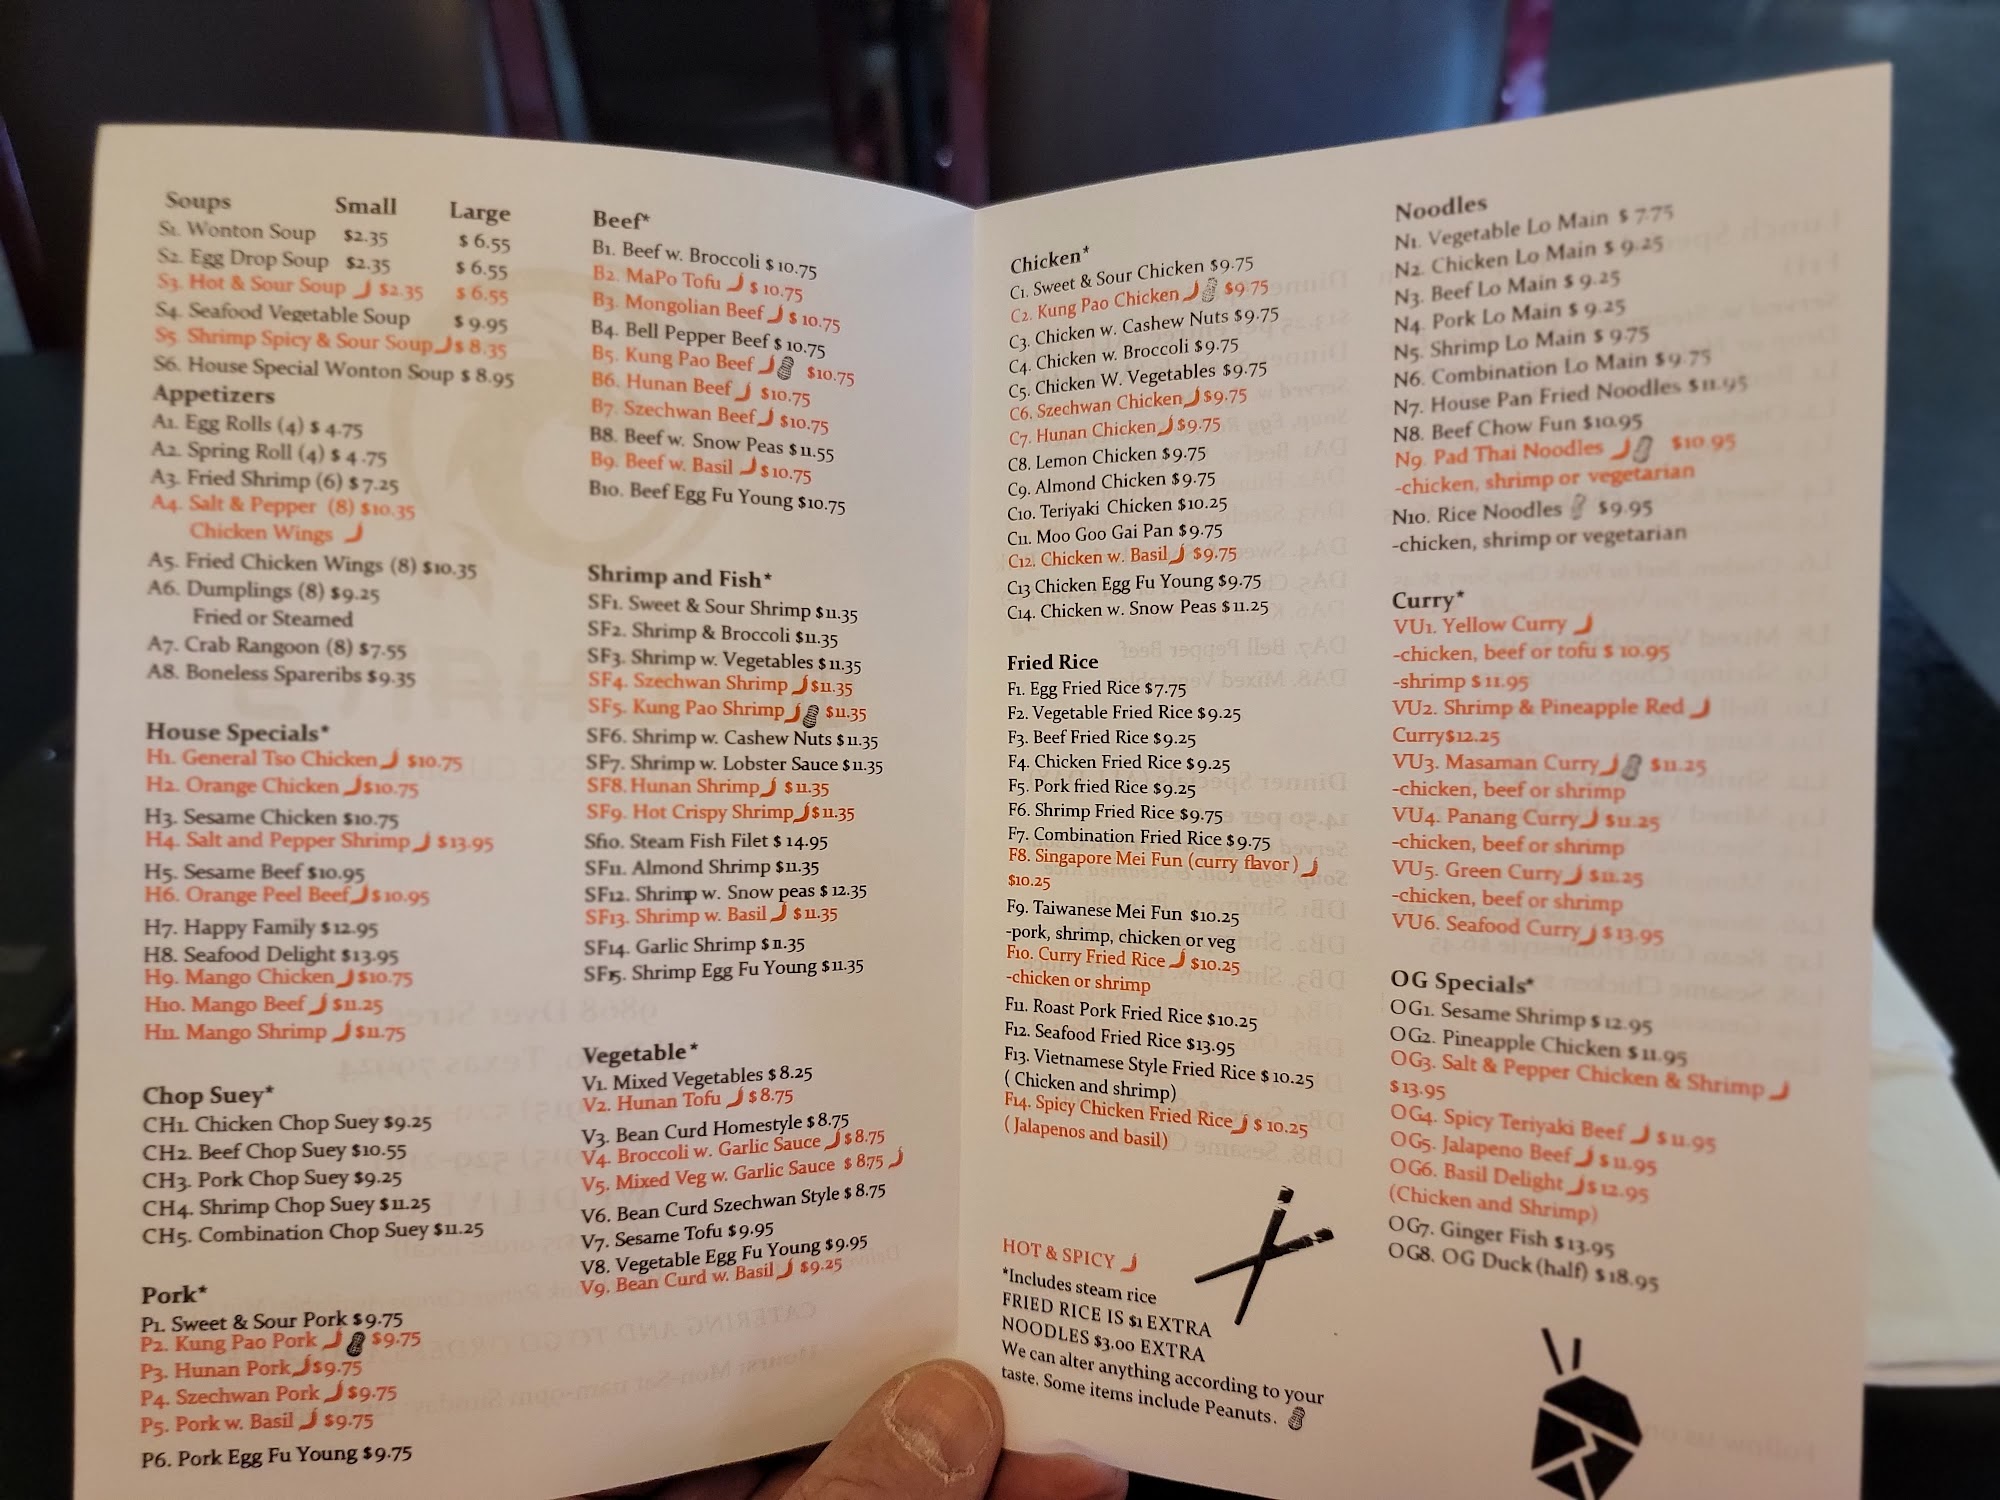 Soups Small Large
S1. Wonton Soup $2.35 $6.55
S2. Egg Drop Soup $2.35 $6.55
S3. Hot & Sour Soup $2.35 $6.55
S4. Seafood Vegetable Soup $9.95
S5. Shrimp Spicy & Sour Soup $8.35
S6. House Special Wonton Soup $8.95
Appetizers
A1. Egg Rolls (4) $4.75
A2. Spring Roll (4) $4.75
A3. Fried Shrimp (6) $7.25
A4. Salt & Pepper (8) $10.35
Chicken Wings
A5. Fried Chicken Wings (8) $10.35
A6. Dumplings (8) $9.25
Fried or Steamed
A7. Crab Rangoon (8) $7.55
A8. Boneless Spareribs $9.35
House Specials*
H1. General Tso Chicken $10.75
H2. Orange Chicken $10.75
H3. Sesame Chicken $10.75
H4. Salt and Pepper Shrimp $13.95
H5. Sesame Beef $10.95
H6. Orange Peel Beef $10.95
H7. Happy Family $12.95
H8. Seafood Delight $13.95
H9. Mango Chicken $10.75
H10. Mango Beef $11.25
H11. Mango Shrimp $11.75
Chop Suey*
CH1. Chicken Chop Suey $9.25
CH2. Beef Chop Suey $10.55
CH3. Pork Chop Suey $9.25
CH4. Shrimp Chop Suey $11.25
CH5. Combination Chop Suey $11.25
Pork*
P1. Sweet & Sour Pork $9.75
P2. Kung Pao Pork $9.75
P3. Hunan Pork $9.75
P4. Szechwan Pork $9.75
P5. Pork w. Basil $9.75
P6. Pork Egg Fu Young $9.75
Beef*
B1. Beef w. Broccoli $10.75
B2. MaPo Tofu $10.75
B3. Mongolian Beef $10.75
B4. Bell Pepper Beef $10.75
B5. Kung Pao Beef $10.75
B6. Hunan Beef $10.75
B7. Szechwan Beef $10.75
B8. Beef w. Snow Peas $11.55
B9. Beef w. Basil $10.75
B10. Beef Egg Fu Young $10.75
Shrimp and Fish*
SF1. Sweet & Sour Shrimp $11.35
SF2. Shrimp & Broccoli $11.35
SF3. Shrimp w. Vegetables $11.35
SF4. Szechwan Shrimp $11.35
SF5. Kung Pao Shrimp $11.35
SF6. Shrimp w. Cashew Nuts $11.35
SF7. Shrimp w. Lobster Sauce $11.35
SF8. Hunan Shrimp $11.35
SF9. Hot Crispy Shrimp $11.35
Sf10. Steam Fish Filet $14.95
SF11. Almond Shrimp $11.35
SF12. Shrimp w. Snow peas $12.35
SF13. Shrimp w. Basil $11.35
SF14. Garlic Shrimp $11.35
SF15. Shrimp Egg Fu Young $11.35
Vegetable*
V1. Mixed Vegetables $8.25
V2. Hunan Tofu $8.75
V3. Bean Curd Homestyle $8.75
V4. Broccoli w. Garlic Sauce $8.75
V5. Mixed Veg w. Garlic Sauce $875
V6. Bean Curd Szechwan Style $8.75
V7. Sesame Tofu $9.95
V8. Vegetable Egg Fu Young $9.95
V9. Bean Curd w. Basil $9.25
Chicken*
C1. Sweet & Sour Chicken $9.75
C2. Kung Pao Chicken $9.75
C3. Chicken w. Cashew Nuts $9.75
C4. Chicken w. Broccoli $9.75
C5. Chicken W. Vegetables $9.75
C6. Szechwan Chicken $9.75
C7. Hunan Chicken $9.75
C8. Lemon Chicken $9.75
C9. Almond Chicken $9.75
C10. Teriyaki Chicken $10.25
C11. Moo Goo Gai Pan $9.75
C12. Chicken w. Basil $9.75
C13 Chicken Egg Fu Young $9.75
C14. Chicken w. Snow Peas $11.25
Fried Rice
F1. Egg Fried Rice $7.75
F2. Vegetable Fried Rice $9.25
F3. Beef Fried Rice $9.25
F4. Chicken Fried Rice $9.25
F5. Pork fried Rice $9.25
F6. Shrimp Fried Rice $9.75
F7. Combination Fried Rice $9.75
F8. Singapore Mei Fun (curry flavor)
$10.25
F9. Taiwanese Mei Fun $10.25
-pork, shrimp, chicken or veg
F10. Curry Fried Rice $10.25
-chicken or shrimp
F11. Roast Pork Fried Rice $10.25
F12. Seafood Fried Rice $13.95
F13. Vietnamese Style Fried Rice $10.25
( Chicken and shrimp)
F14. Spicy Chicken Fried Rice $10.25
( Jalapenos and basil)
HOT & SPICY
*Includes steam rice
FRIED RICE IS $1 EXTRA
NOODLES $3.00 EXTRA
We can alter anything according to your
taste. Some items include Peanuts.
Noodles
N1. Vegetable Lo Main $7.75
N2. Chicken Lo Main $9.25
N3. Beef Lo Main $9.25
N4. Pork Lo Main $9.25
N5. Shrimp Lo Main $9.75
N6. Combination Lo Main $9.75
N7. House Pan Fried Noodles $11.95
N8. Beef Chow Fun $10.95
N9. Pad Thai Noodles $10.95
-chicken, shrimp or vegetarian
N10. Rice Noodles $9.95
-chicken, shrimp or vegetarian
Curry*
VU1. Yellow Curry
-chicken, beef or tofu $10.95
-shrimp $11.95
VU2. Shrimp & Pineapple Red
Curry$12.25
VU3. Masaman Curry $11.25
-chicken, beef or shrimp
VU4. Panang Curry $11.25
-chicken, beef or shrimp
VU5. Green Curry $11.25
-chicken, beef or shrimp
VU6. Seafood Curry $13.95
OG Specials*
OG1. Sesame Shrimp $12.95
OG2. Pineapple Chicken $11.95
OG3. Salt & Pepper Chicken & Shrimp
$13.95
OG4. Spicy Teriyaki Beef $11.95
OG5. Jalapeno Beef $11.95
OG6. Basil Delight $12.95
(Chicken and Shrimp)
OG7. Ginger Fish $13.95
OG8. OG Duck (half) $18.95